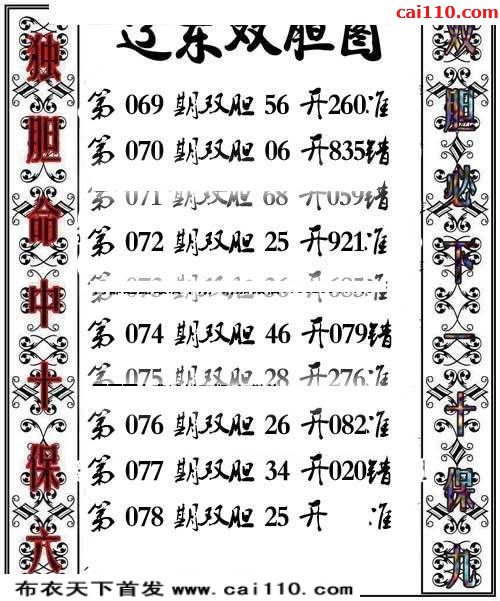 cai110.com
辽东双胆图
独胆命中十保六
双胆必下一十保九
第 069 期双胆 56 开260准
第 070 期双胆 06 开835错
第 071 期双胆 68 开059错
第 072 期双胆 25 开921准
第 074 期双胆 46 开079错
第 075 期双胆 28 开276准
第 076 期双胆 26 开082准
第 077 期双胆 34 开020错
第 078 期双胆 25 开 准
布衣天下首发 www.cai110.com